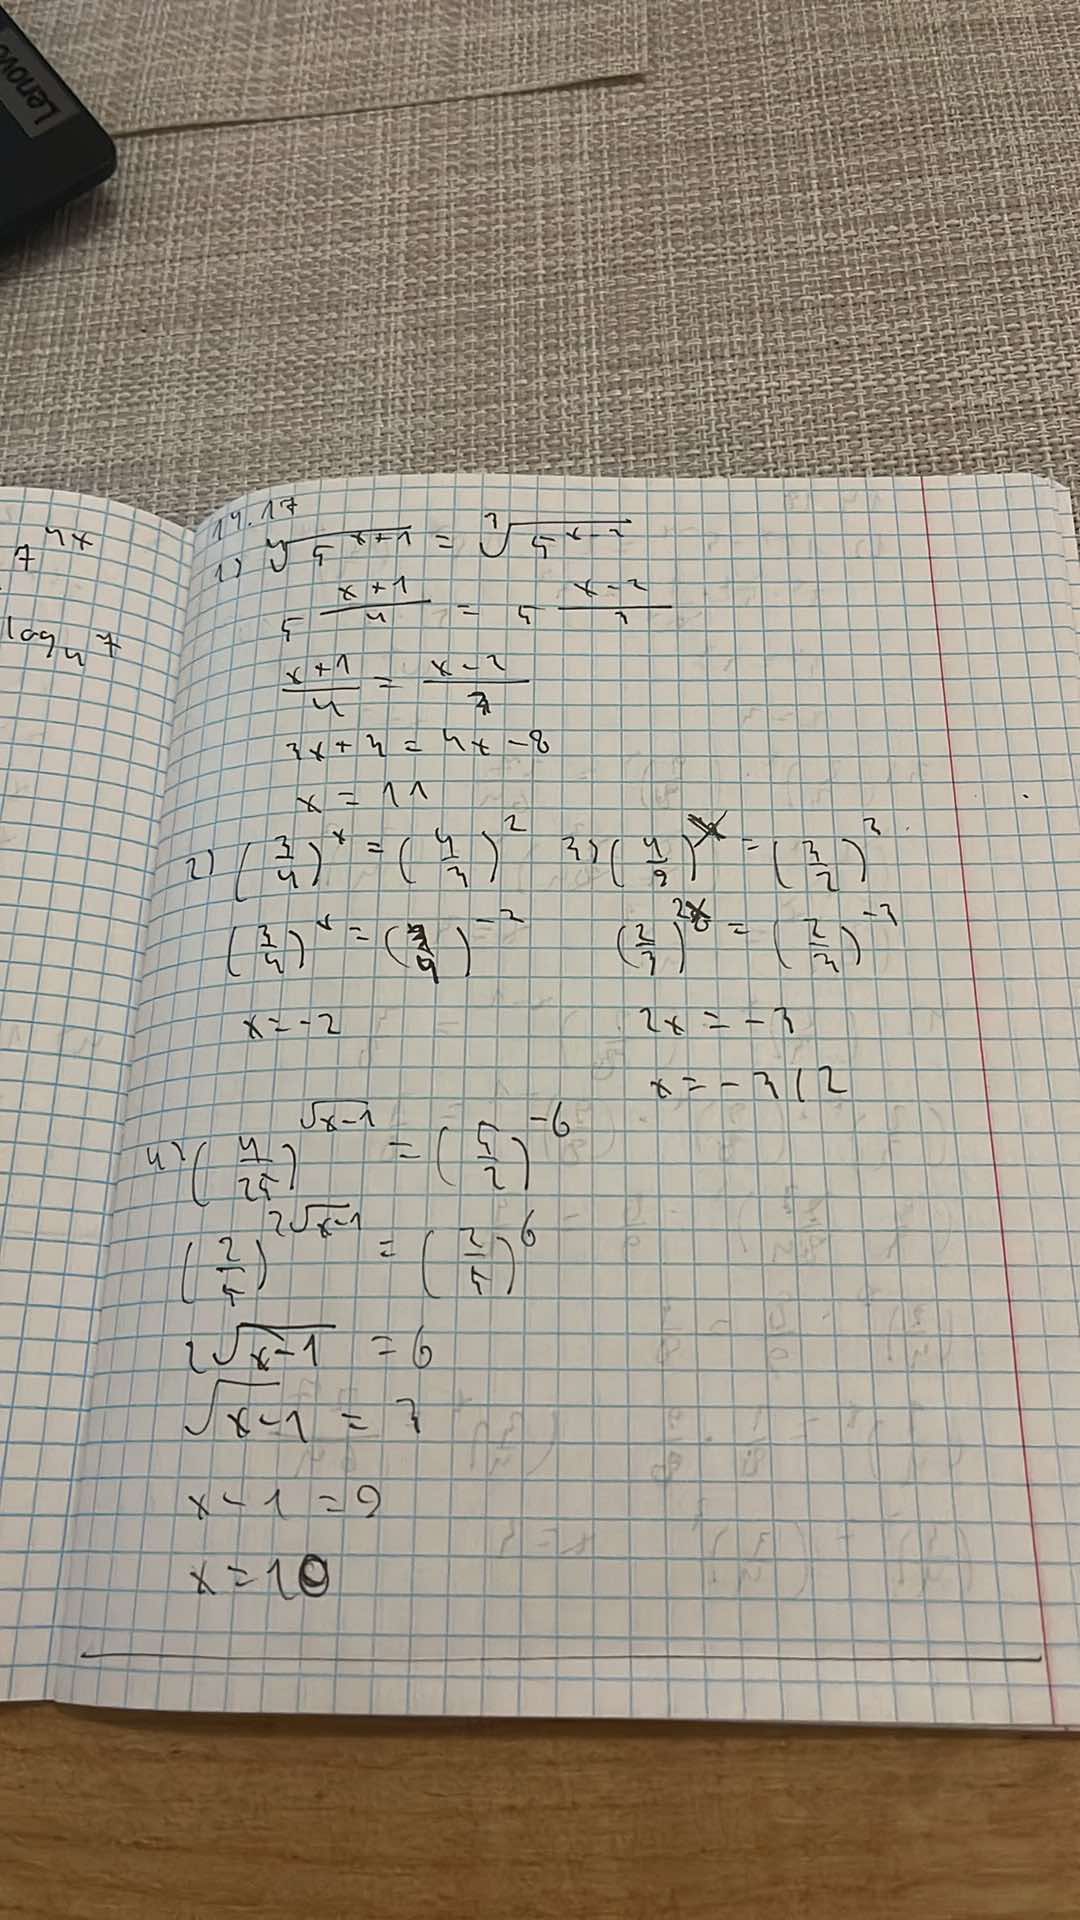 Lenovo
7^{4x}
log_4 7
14.17
1) \sqrt[4]{5^{x+1}} = \sqrt[3]{5^{x-2}}
5^{\frac{x+1}{4}} = 5^{\frac{x-2}{3}}
\frac{x+1}{4} = \frac{x-2}{3}
3x+3 = 4x-8
x = 11
2) (\frac{3}{4})^x = (\frac{4}{3})^2
(\frac{3}{4})^x = (\frac{3}{4})^{-2}
x = -2
3) (\frac{4}{9})^x = (\frac{3}{2})^3
(\frac{2}{3})^{2x} = (\frac{2}{3})^{-3}
2x = -3
x = -3/2
4) (\frac{4}{25})^{\sqrt{x-1}} = (\frac{5}{2})^{-6}
(\frac{2}{5})^{2\sqrt{x-1}} = (\frac{2}{5})^6
2\sqrt{x-1} = 6
\sqrt{x-1} = 3
x-1 = 9
x = 10